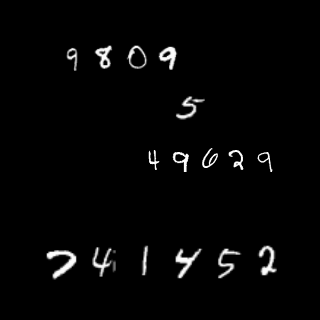 9809
5
49629
741452